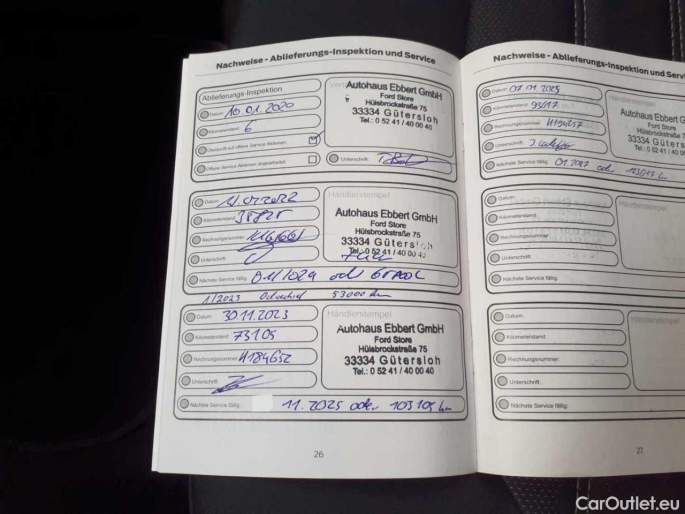 Nachweise - Ablieferungs-Inspektion und Service
Ablieferungs-Inspektion
Datum 10.01.2020
Kilometerstand 6
Überprüft auf offene Service-Aktionen
Offene Service-Aktionen abgearbeitet
Autohaus Ebbert GmbH
Ford Store
Hülsbrockstraße 75
33334 Gütersloh
Tel.: 0 52 41 / 40 00 40
Unterschrift
Datum
Kilometerstand
Rechnungsnummer
Unterschrift
Händlerstempel
Autohaus Ebbert GmbH
Ford Store
Hülsbrockstraße 75
33334 Gütersloh
Tel.: 0 52 41 / 40 00 40
Nächste Service fällig
1/2023 53000 km
Datum 30.11.2023
Kilometerstand 73105
Rechnungsnummer 4184652
Unterschrift
Händlerstempel
Autohaus Ebbert GmbH
Ford Store
Hülsbrockstraße 75
33334 Gütersloh
Tel.: 0 52 41 / 40 00 40
Nächste Service fällig 11.2025 oder 103105 km
26
Nachweise - Ablieferungs-Inspektion und Servi
Datum 07.11.2025
Kilometerstand
Rechnungsnummer
Unterschrift
Autohaus Ebbert G
Ford Store
Hülsbrockstraße
33334 Güters
Nächste Service fällig 01.2027
Datum
Kilometerstand
Rechnungsnummer
Unterschrift
Händlerstempel
Nächste Service fällig
Datum
Kilometerstand
Rechnungsnummer
Unterschrift
Händlerstempel
Nächste Service fällig
27
CarOutlet.eu